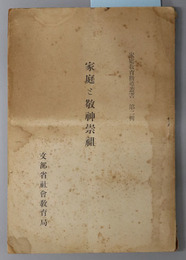 家庭教育指導叢書 第三輯
家庭と敬神崇祖
文部省社會教育局